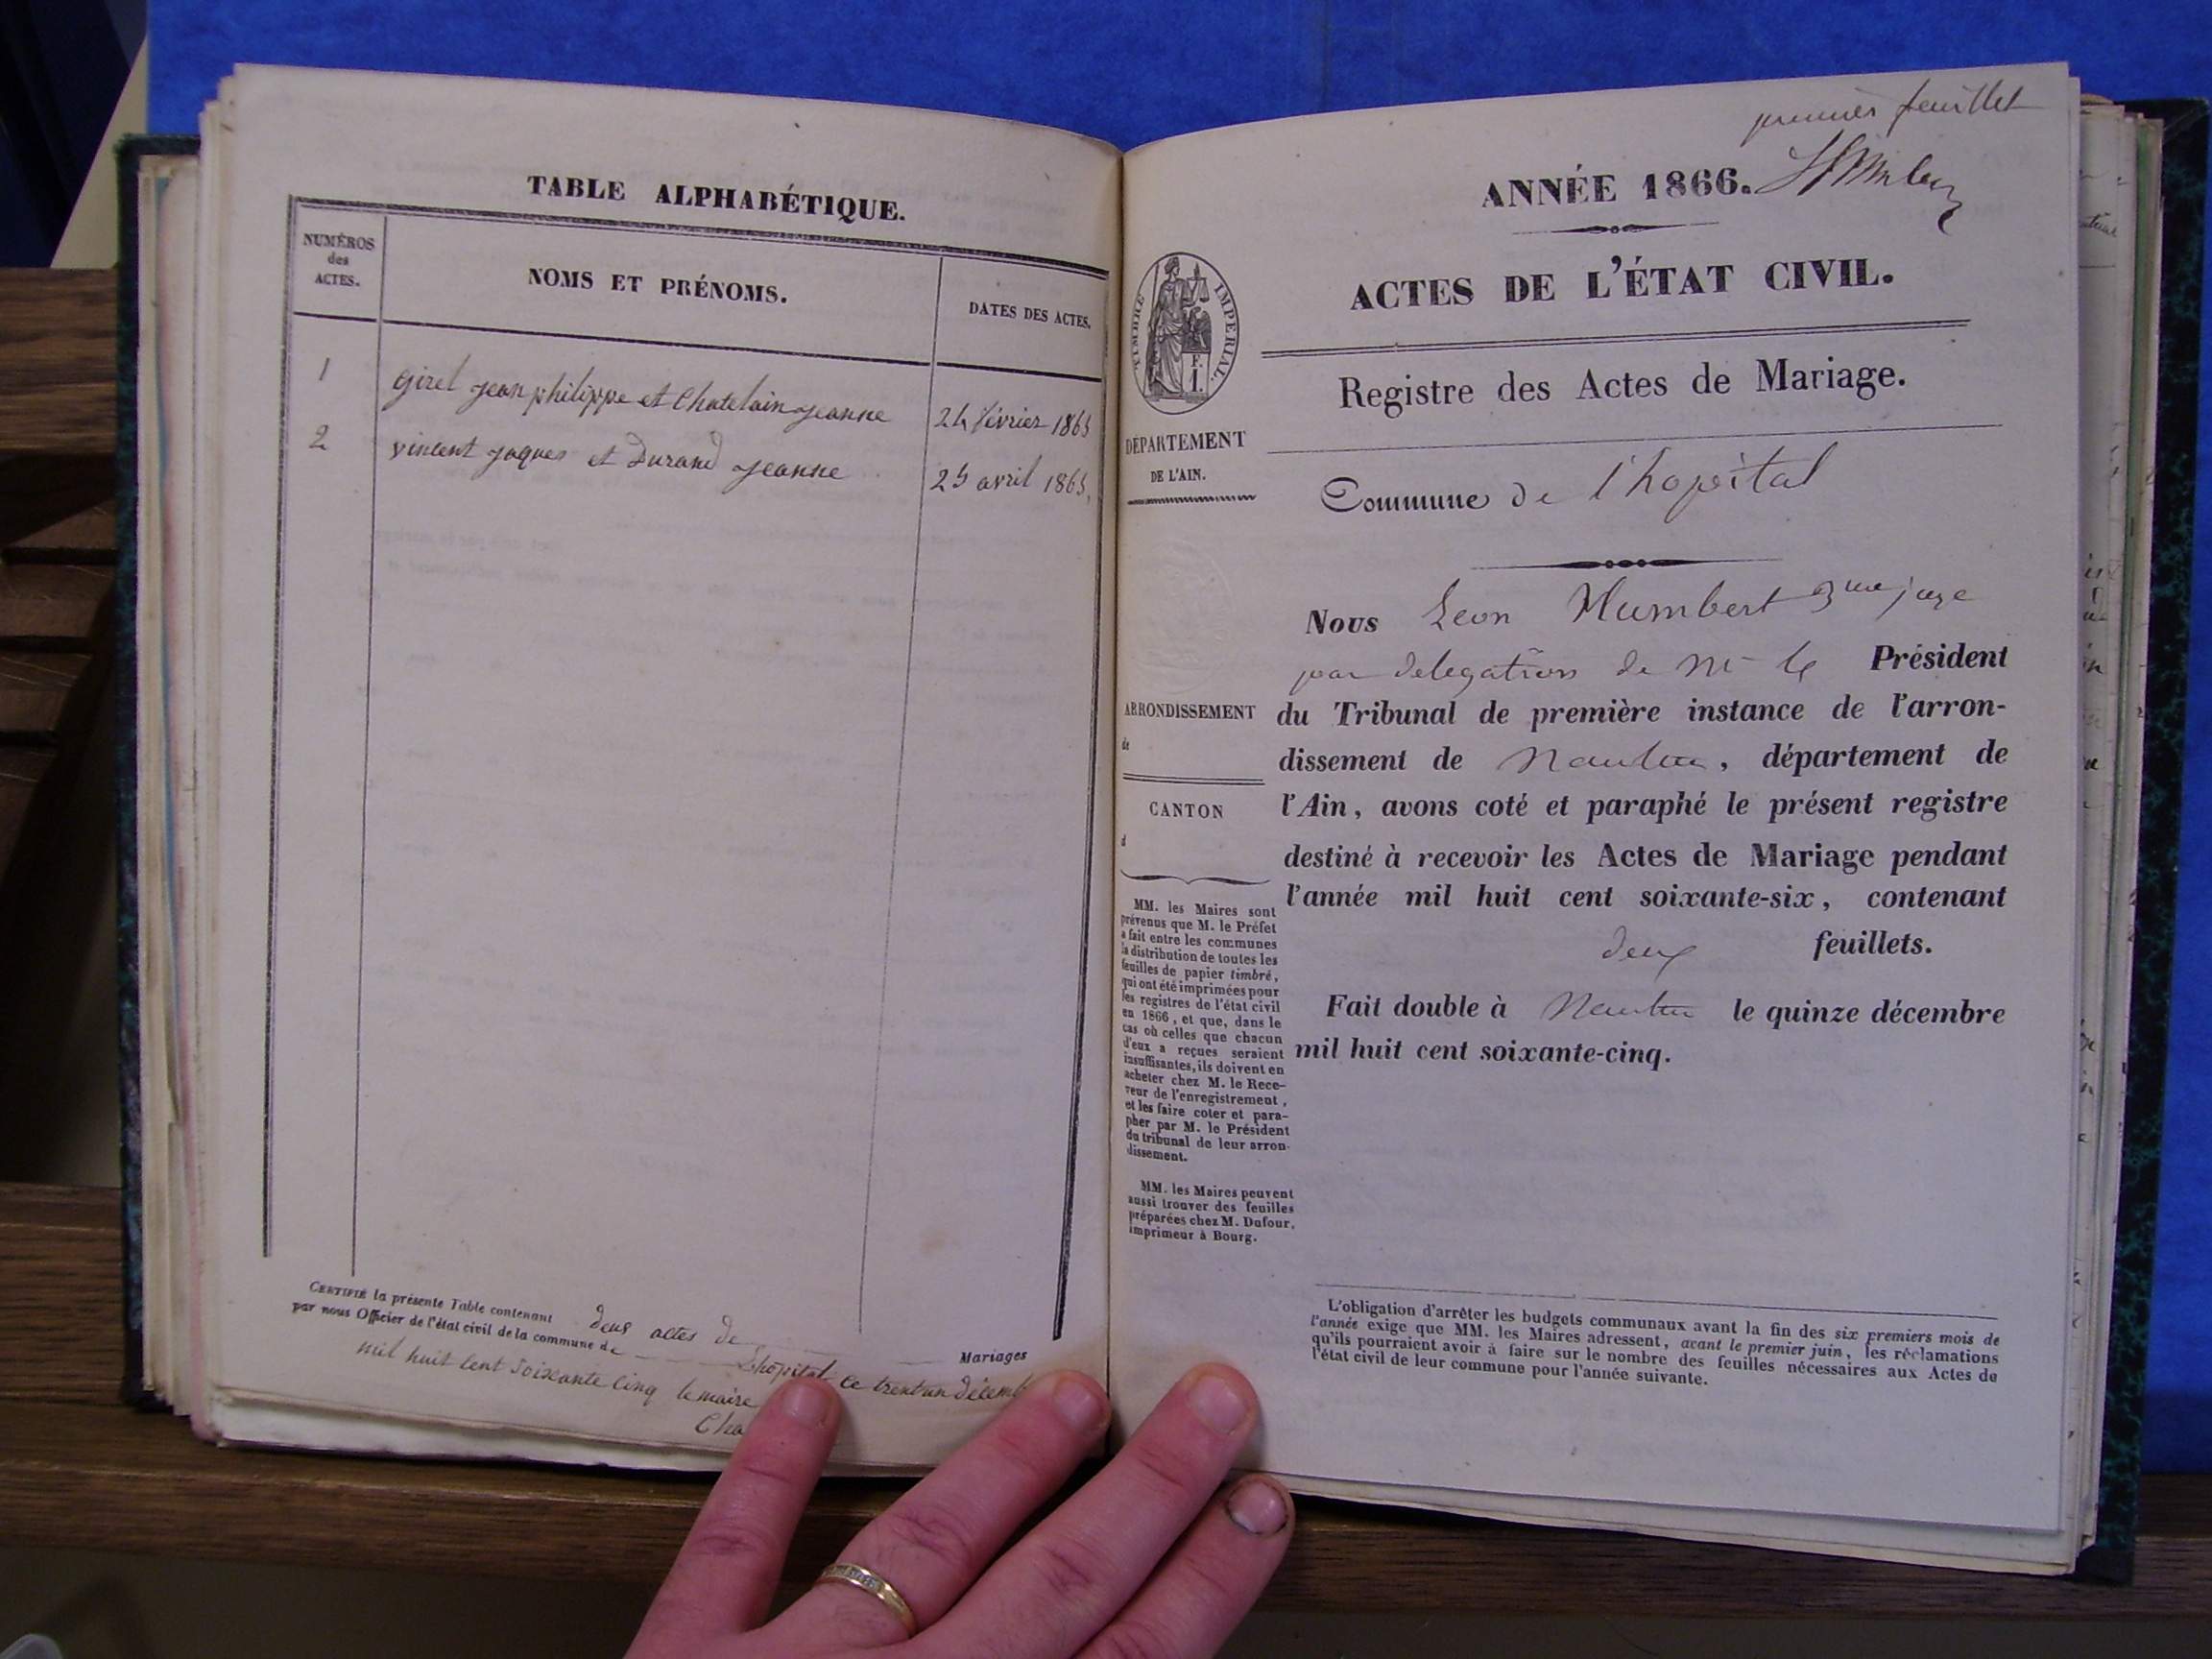 TABLE ALPHABÉTIQUE.
NUMÉROS
des
ACTES.
NOMS ET PRÉNOMS.
DATES DES ACTES.
1
girel jean philippe et Chatelain jeanne
24 février 1865
2
vincent jaques et Durand jeanne
25 avril 1865,
CERTIFIÉ la présente Table contenant deux actes de Mariages
par nous Officier de l'état civil de la commune de Lhopital ce trentun décemb
mil huit cent soixante cinq le maire
Cha
premier feuillet
ANNÉE 1866.
ACTES DE L'ÉTAT CIVIL.
Registre des Actes de Mariage.
TIMBRE IMPÉRIAL.
F.
1.
DÉPARTEMENT
DE L'AIN.
Commune de l'hopital
Nous Leon Humbert juge
par delegation de Mr le Président
ARRONDISSEMENT
de
du Tribunal de première instance de l'arron-
dissement de Nantua, département de
CANTON
d
l'Ain, avons coté et paraphé le présent registre
destiné à recevoir les Actes de Mariage pendant
l'année mil huit cent soixante-six, contenant
deux feuillets.
Fait double à Nantua le quinze décembre
mil huit cent soixante-cinq.
MM. les Maires sont
prévenus que M. le Préfet
a fait entre les communes
la distribution de toutes les
feuilles de papier timbré,
qui ont été imprimées pour
les registres de l'état civil
en 1866, et que, dans le
cas où celles que chacun
d'eux a reçues seraient
insuffisantes, ils doivent en
acheter chez M. le Rece-
veur de l'enregistrement,
et les faire coter et para-
pher par M. le Président
du tribunal de leur arron-
dissement.
MM. les Maires peuvent
aussi trouver des feuilles
préparées chez M. Dufour,
imprimeur à Bourg.
L'obligation d'arrêter les budgets communaux avant la fin des six premiers mois de
l'année exige que MM. les Maires adressent, avant le premier juin, les réclamations
qu'ils pourraient avoir à faire sur le nombre des feuilles nécessaires aux Actes de
l'état civil de leur commune pour l'année suivante.